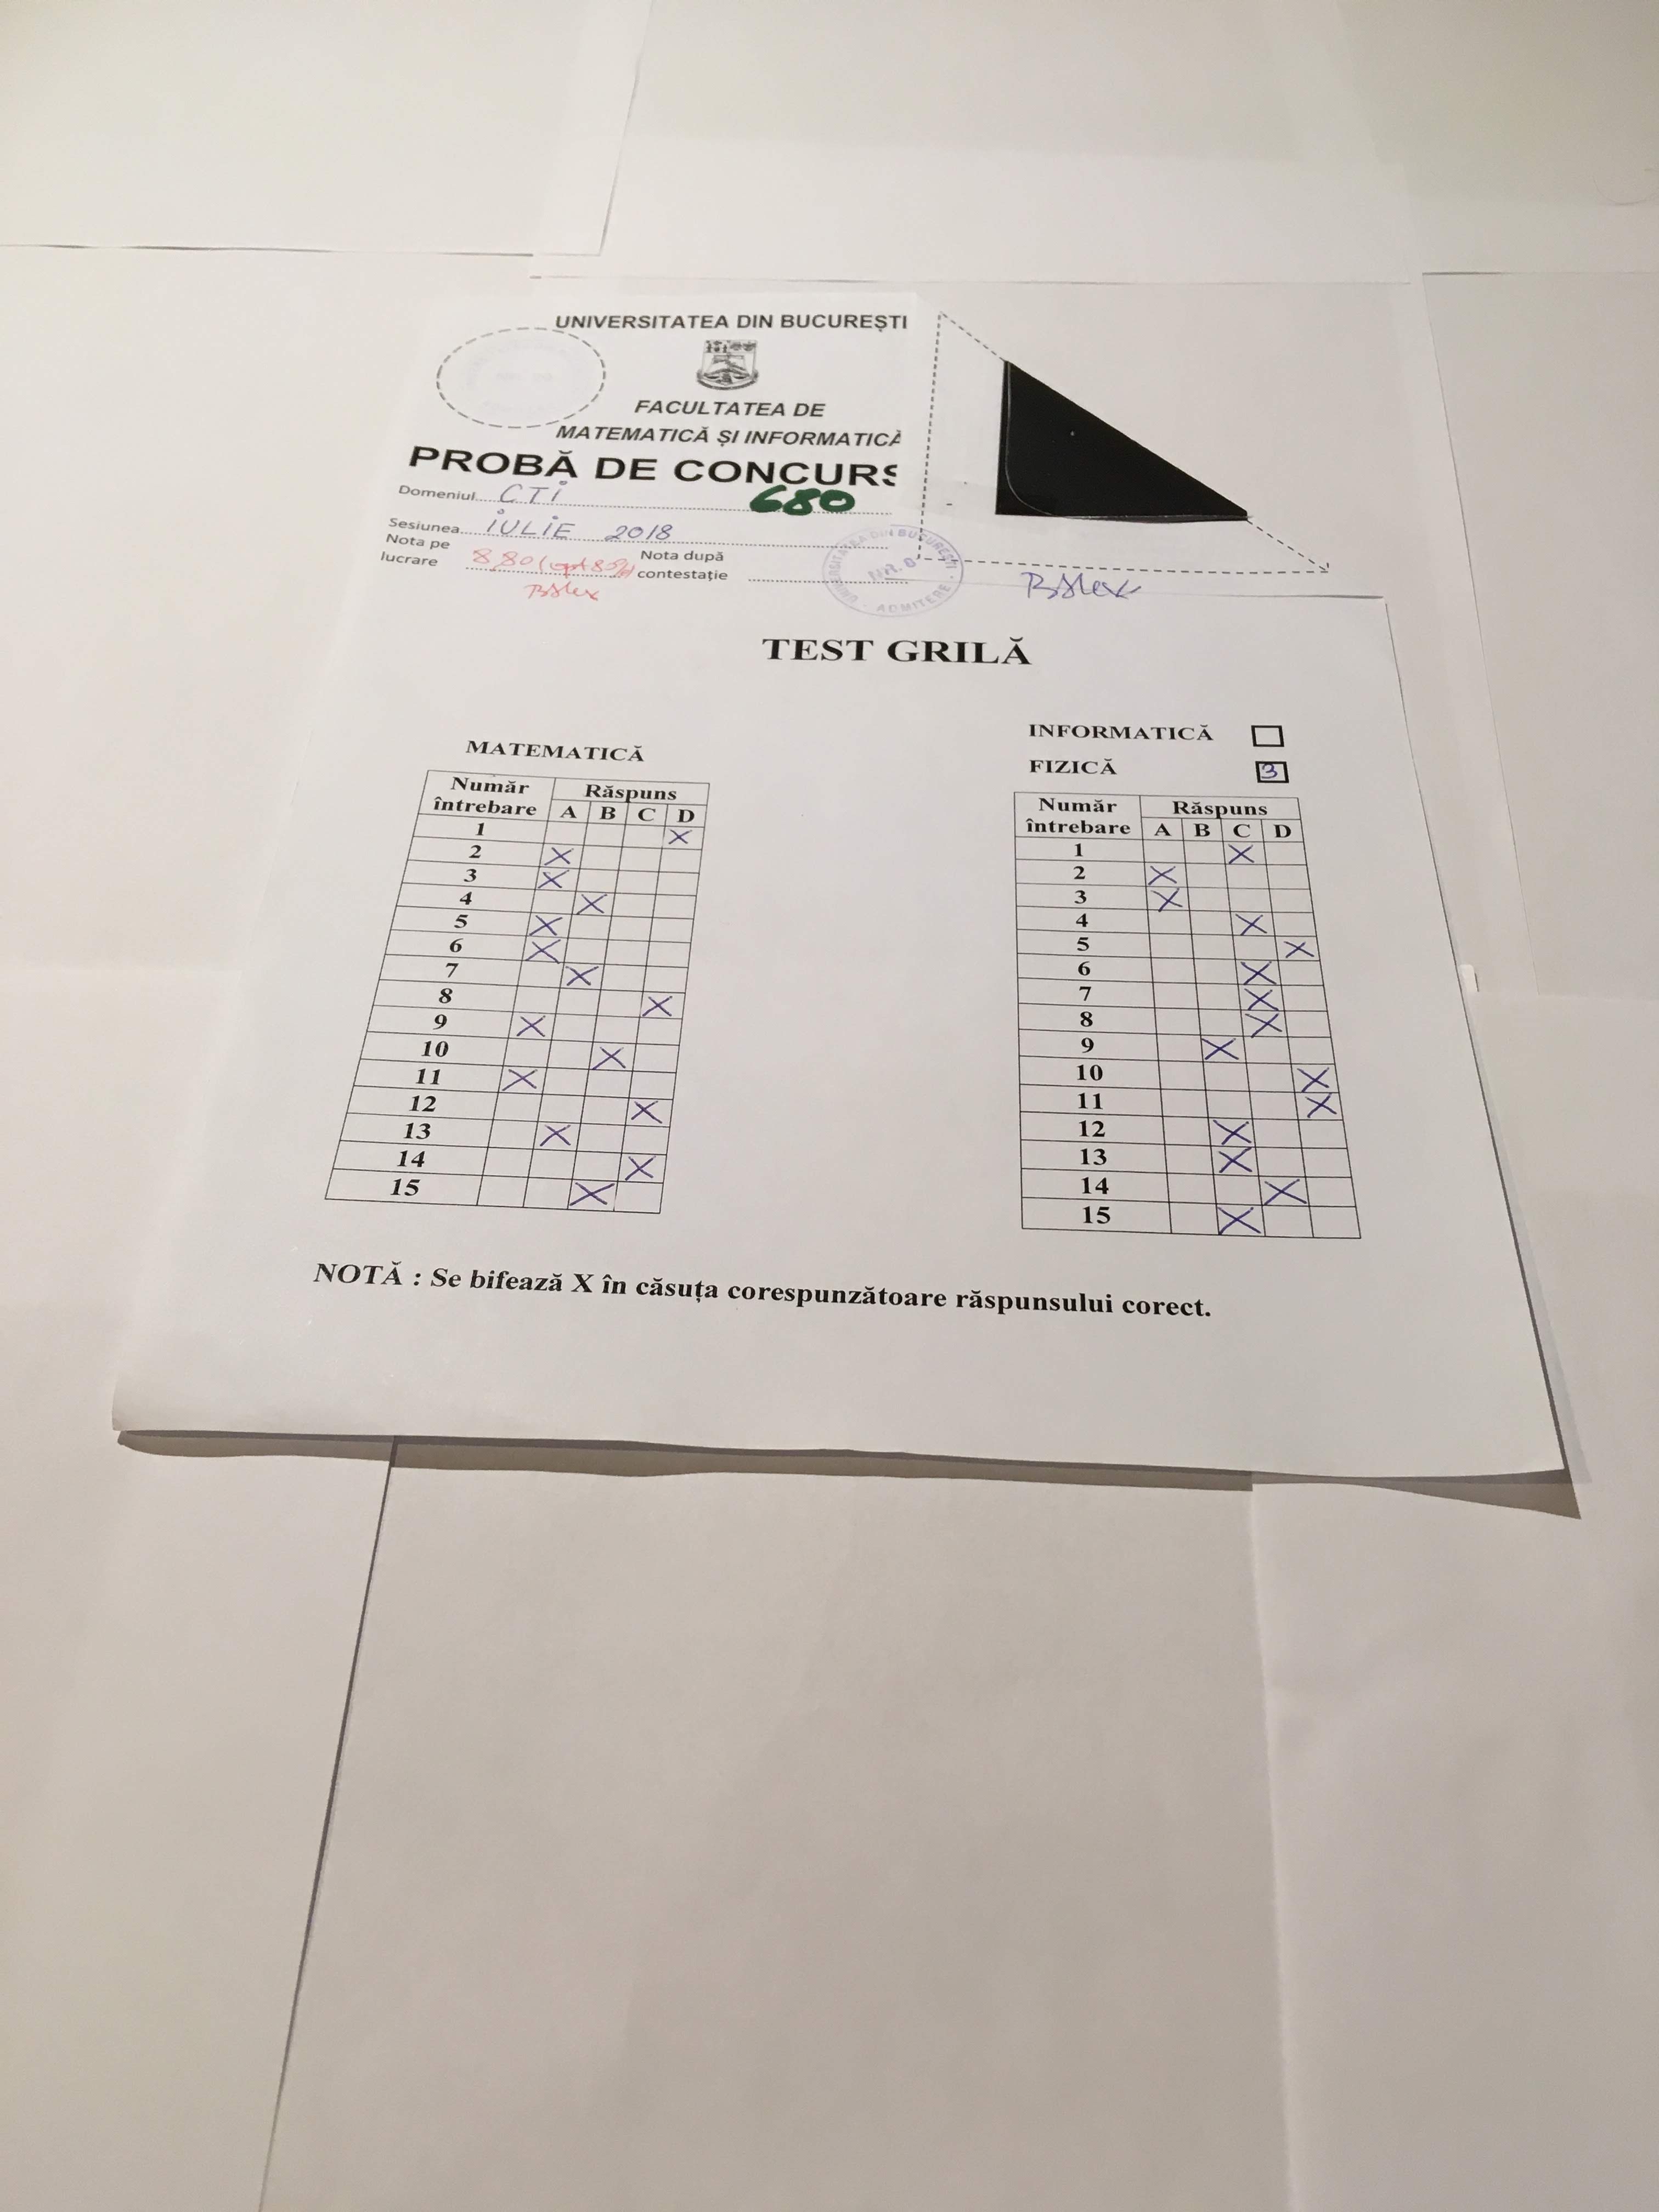 UNIVERSITATEA DIN BUCUREȘTI
FACULTATEA DE
MATEMATICĂ ȘI INFORMATICĂ
PROBĂ DE CONCURS
Domeniul CTI 680
Sesiunea IULIE 2018
Nota pe lucrare 8,80 Nota după contestație
UNIVERSITATEA DIN BUCUREȘTI
ADMITERE
TEST GRILĂ
MATEMATICĂ
Număr întrebare Răspuns
A B C D
1 X
2 X
3 X
4 X
5 X
6 X
7 X
8 X
9 X
10 X
11 X
12 X
13 X
14 X
15 X
INFORMATICĂ
FIZICĂ 3
Număr întrebare Răspuns
A B C D
1 X
2 X
3 X
4 X
5 X
6 X
7 X
8 X
9 X
10 X
11 X
12 X
13 X
14 X
15 X
NOTĂ : Se bifează X în căsuța corespunzătoare răspunsului corect.